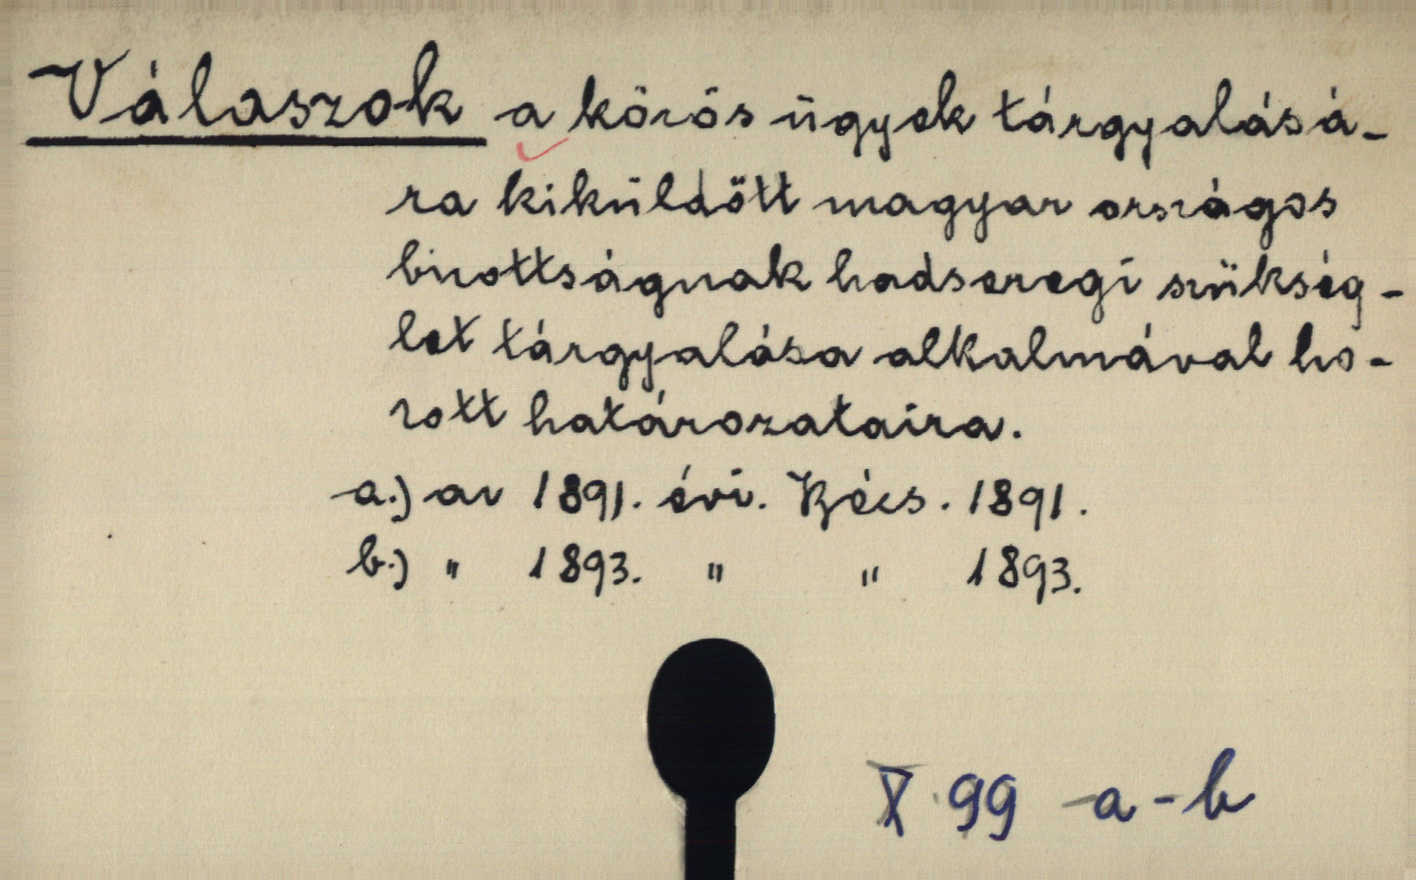 Válaszok a közös ügyek tárgyalásá-
ra kiküldött magyar országos
bizottságnak hadseregi szükség-
let tárgyalása alkalmával ho-
zott határozataira.
a.) az 1891. évi. Bécs. 1891.
b.) " 1893. " " 1893.
X 99 a-b